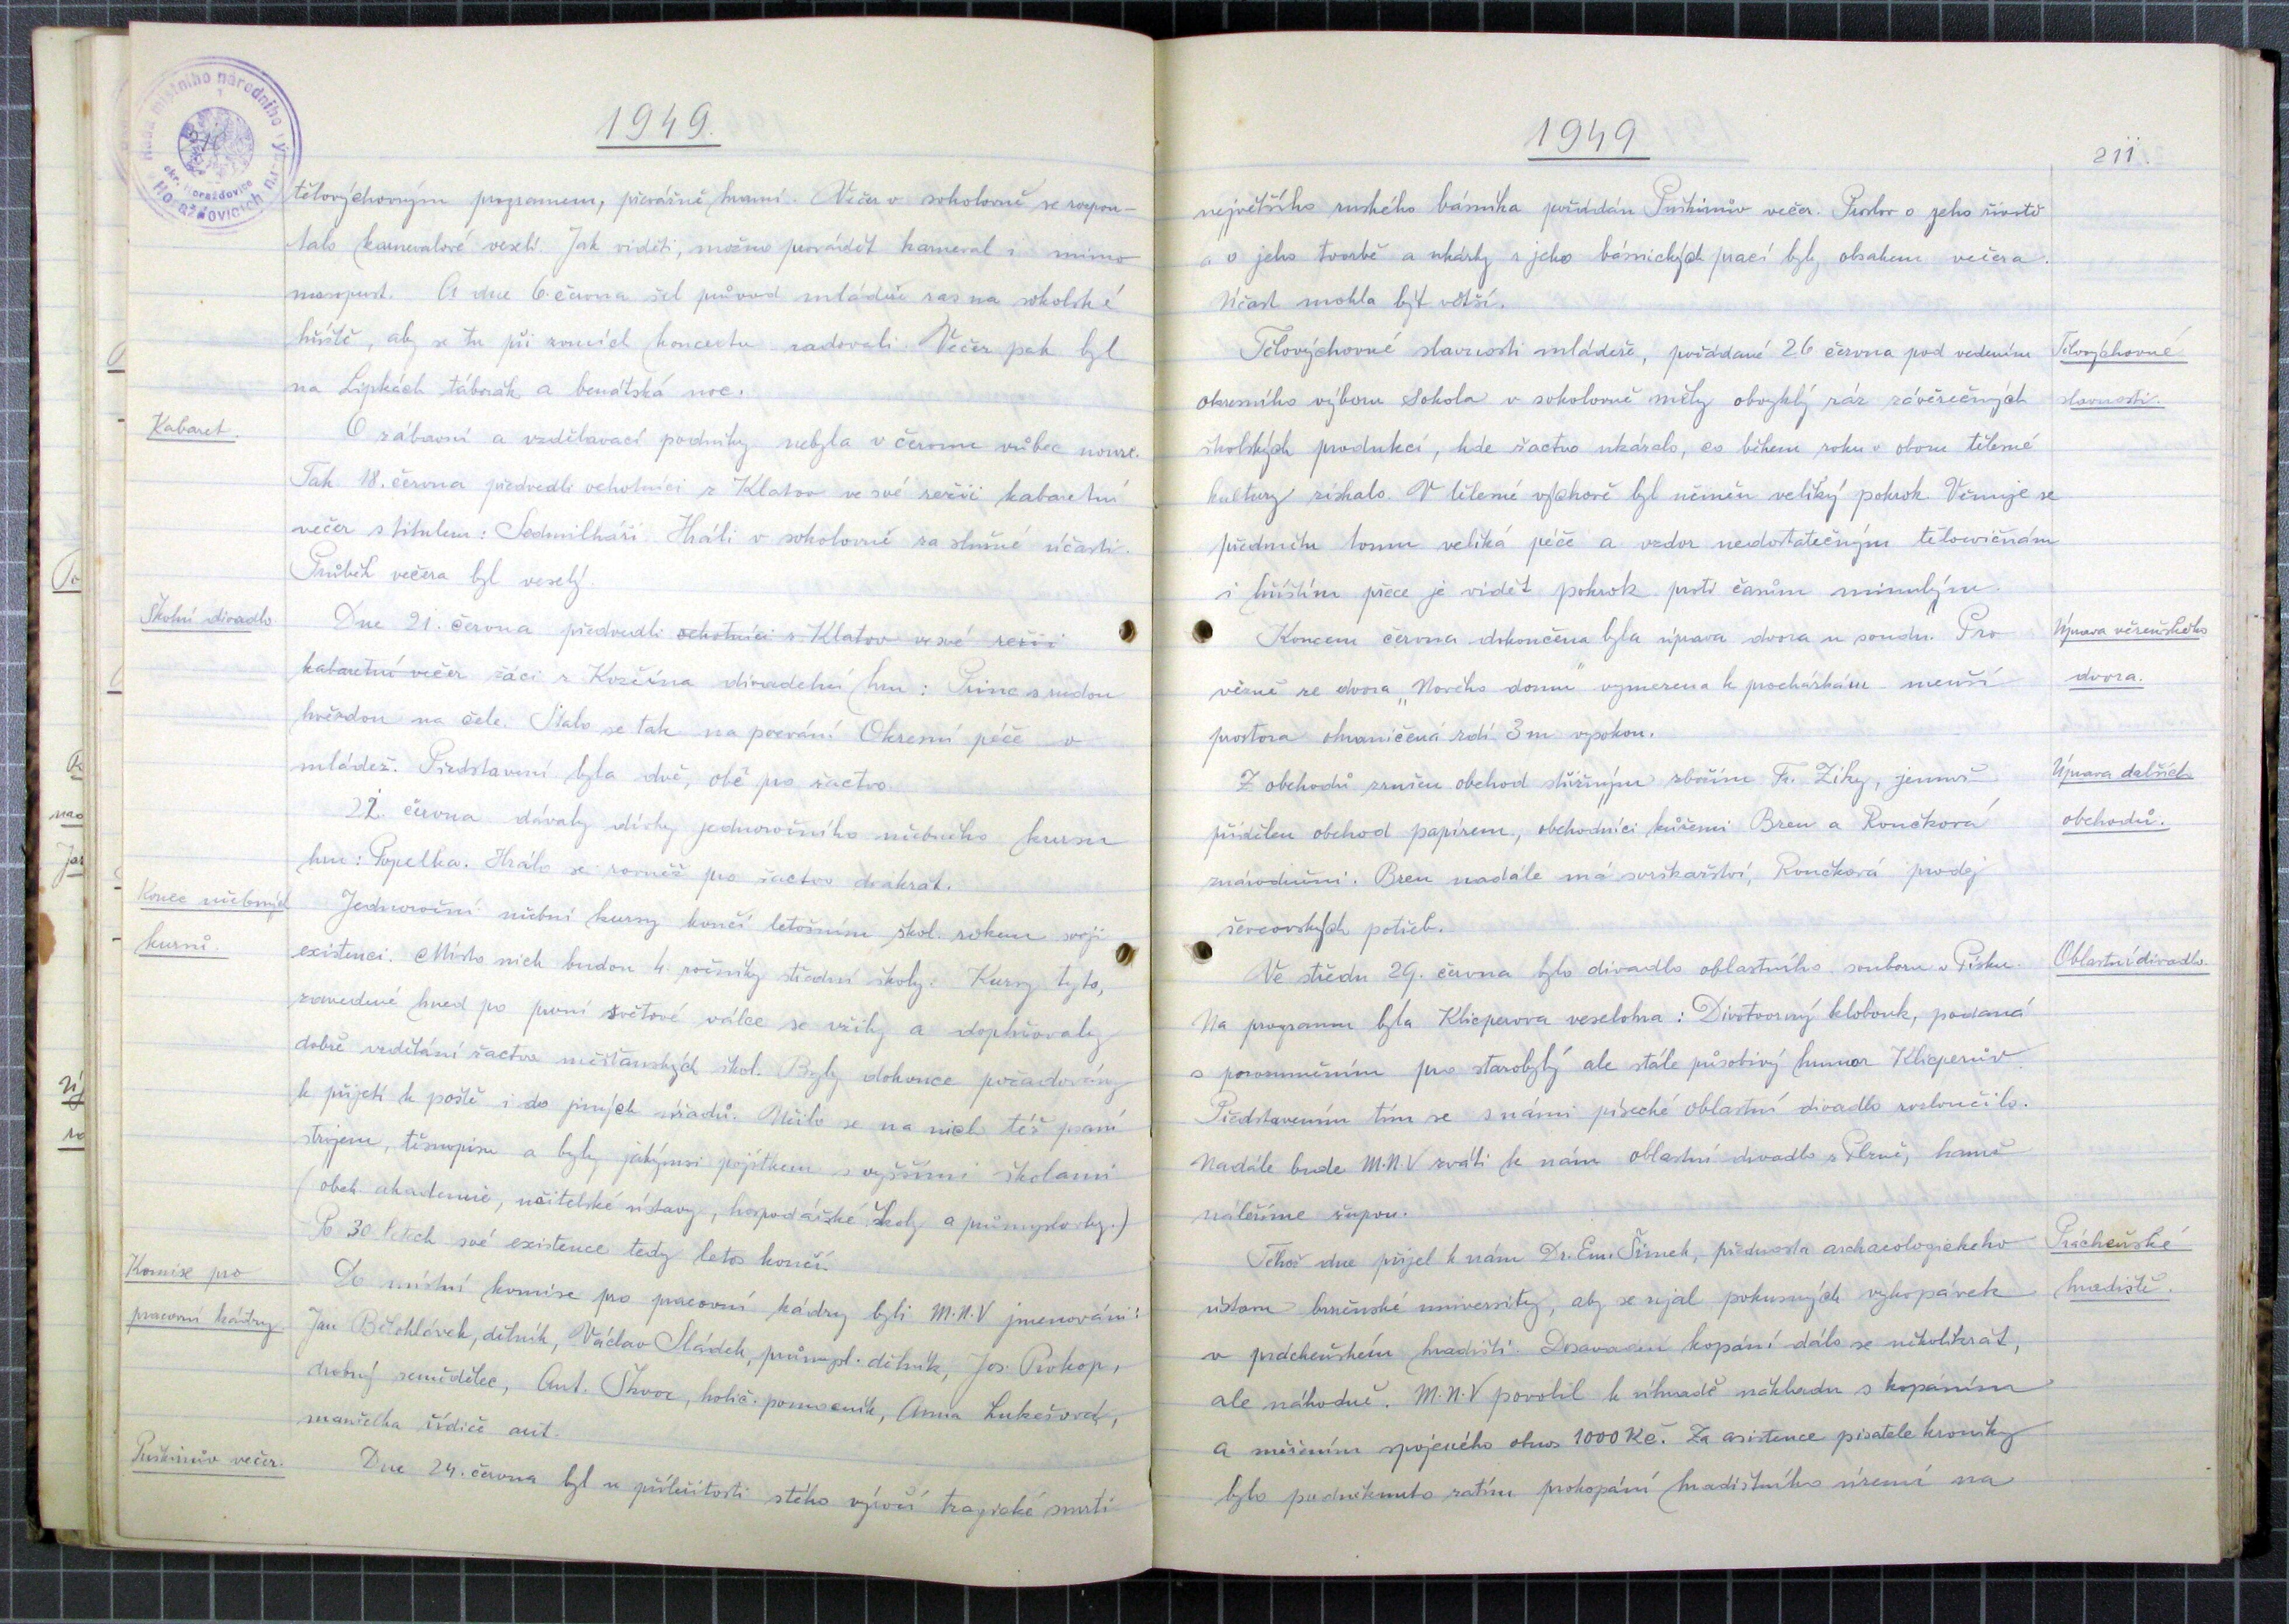 Rada místního národního výboru
v Horažďovicích
okr. Horažďovice
1949.
tělovýchovným programem, převážně hrami. Večer v sokolovně se rozpou-
talo karnevalové veselí. Jak viděti, možno provádět karneval i mimo
masopust. A dne 6. června šel průvod mládeže zas na sokolské
hřiště, aby se tu při zvucích koncertu radovali. Večer pak byl
na Lipkách táborák a benátská noc.
Kabaret.
O zábavní a vzdělavací podniky nebyla v červnu vůbec nouze.
Tak 18. června předvedli ochotníci z Klatov ve své režii kabaretní
večer s titulem: Sedmilháři. Hráli v sokolovně za slušné účasti.
Průběh večera byl veselý.
Školní divadlo
Dne 21. června předvedli ochotníci z Klatov ve své režii
kabaretní večer žáci z Kozčína divadelní hru: Princ s rudou
hvězdou na čele. Stalo se tak na pozvání Okresní péče o
mládež. Představení byla dvě, obě pro žactvo
22. června dávaly dívky jednoročního učebného kursu
hru: Popelka. Hrálo se rovněž pro žactvo dvakrát.
Konec učebných
kursů.
Jednoroční učební kursy končí letošním škol. rokem svoji
existenci. Místo nich budou 4. ročníky střední školy. Kursy tyto,
zavedené hned po první světové válce se vžily a doplňovaly
dobře vzdělání žactva měšťanských škol. Byly dokonce požadovány
k přijetí k poště i do jiných úřadů. Učilo se na nich též psaní
strojem, těsnopisu a byly jakýmsi pojítkem s vyššími školami
(obch. akademie, učitelské ústavy, hospodářské školy a průmyslovky.)
Po 30 letech své existence tedy letos končí.
Komise pro
pracovní kádry
Do místní komise pro pracovní kádry byli M.N.V jmenováni:
Jan Bělohlávek, dělník, Václav Sládek, průmysl. dělník, Jos. Prokop,
drobný zemědělec, Ant. Škvor, holič. pomocník, Anna Lukešová,
manželka řidiče aut.
Puškinův večer.
Dne 24. června byl u příležitosti stého výročí tragické smrti
1949
211.
největšího ruského básníka pořádán Puškinův večer. Proslov o jeho životě
a o jeho tvorbě a ukázky z jeho básnických prací byly obsahem večera.
Účast mohla být větší.
Tělovýchovné
slavnosti.
Tělovýchovné slavnosti mládeže, pořádané 26 června pod vedením
okresního výboru Sokola v sokolovně měly obvyklý ráz závěrečných
školských produkcí, kde žactvo ukázalo, co během roku v oboru tělesné
kultury získalo. V tělesné výchově byl učiněn veliký pokrok. Věnuje se
předmětu tomu veliká péče a vzdor nedostatečným tělocvičnám
i hřištím přece je vidět pokrok proti časům minulým.
Úprava vězeňského
dvora.
Koncem června dokončena byla úprava dvora u soudu. Pro
vězně ze dvora „Nového domu" vymezena k procházkám menší
prostora ohraničená zdí 3 m vysokou.
Úprava dalších
obchodů.
Z obchodů zrušen obchod střižným zbožím Fr. Ziky, jemuž
přidělen obchod papírem, obchodníci kůžemi Bren a Roučková
znárodněni. Bren nadále má svrškařství, Roučková prodej
ševcovských potřeb.
Oblastní divadlo.
Ve středu 29. června bylo divadlo oblastního souboru v Písku.
Na programu byla Klicperova veselohra: Divotvorný klobouk, podaná
s porozuměním pro starobylý ale stále působivý humor Klicperův.
Představením tím se s námi písecké oblastní divadlo rozloučilo.
Nadále bude M.N.V zváti k nám oblastní divadlo z Plzně, kamž
náležíme župou.
Prácheňské
hradiště.
Téhož dne přijel k nám Dr. Em. Šimek, přednosta archaeologického
ústavu brněnské university, aby se ujal pokusných vykopávek
v prácheňském hradišti. Dosavadní kopání dálo se několikrát,
ale náhodně. M.N.V povolil k úhradě nákladu s kopáním
a měřením spojeného obnos 1000 Kč. Za asistence pisatele kroniky
bylo podniknuto zatím prokopání hradištního území na